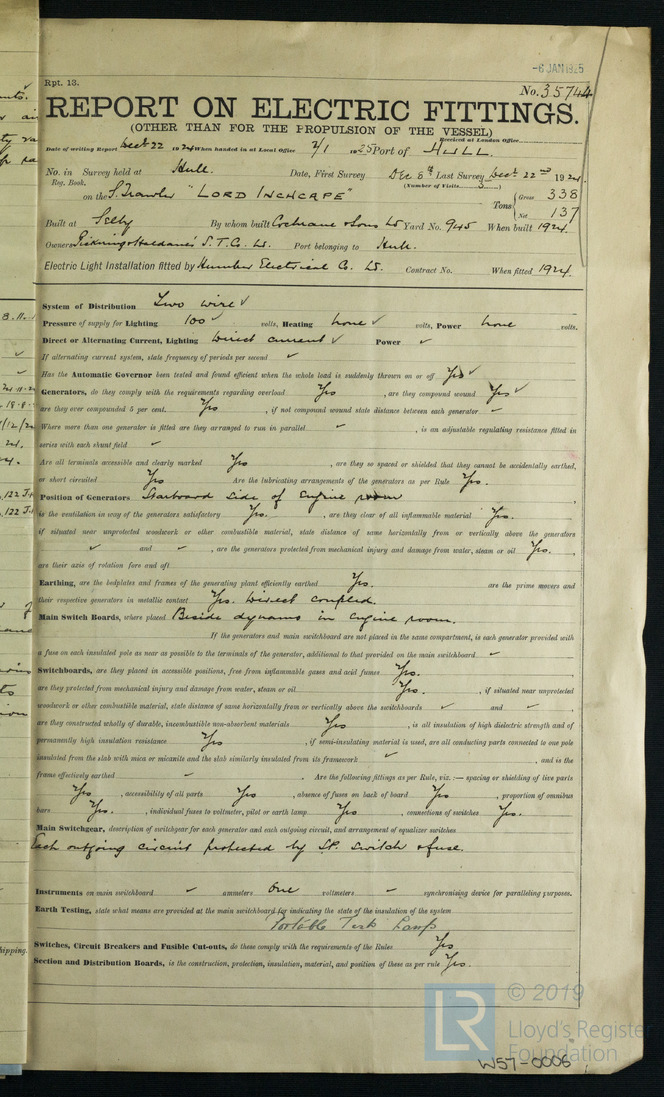 -6 JAN 1925
Rpt. 13.
No. 35744
REPORT ON ELECTRIC FITTINGS.
(OTHER THAN FOR THE PROPULSION OF THE VESSEL)
Received at London Office
Date of writing Report Dect 22 1924 When handed in at Local Office 2/1 1925 Port of HULL.
No. in Reg. Book. Survey held at Hull. Date, First Survey Dec 8th Last Survey Dect 22nd 1924
(Number of Visits 3)
on the S. Trawler "LORD INCHCAPE" Tons { Gross 338
Net 137
Built at Selby By whom built Cochrane & Sons Ld Yard No. 945 When built 1924
Owners Pickering & Haldane's S. T. Co. Ld. Port belonging to Hull.
Electric Light Installation fitted by Humber Electrical Co. Ld. Contract No. When fitted 1924.
System of Distribution Two wire ✓
Pressure of supply for Lighting 100 ✓ volts, Heating none ✓ volts, Power none volts.
Direct or Alternating Current, Lighting Direct current ✓ Power ✓
If alternating current system, state frequency of periods per second ✓
Has the Automatic Governor been tested and found efficient when the whole load is suddenly thrown on or off Yes ✓
Generators, do they comply with the requirements regarding overload Yes , are they compound wound Yes ✓
are they over compounded 5 per cent. Yes , if not compound wound state distance between each generator ✓
Where more than one generator is fitted are they arranged to run in parallel ✓ , is an adjustable regulating resistance fitted in
series with each shunt field ✓
Are all terminals accessible and clearly marked Yes , are they so spaced or shielded that they cannot be accidentally earthed,
or short circuited Yes Are the lubricating arrangements of the generators as per Rule Yes.
Position of Generators Starboard side of engine room
is the ventilation in way of the generators satisfactory Yes. , are they clear of all inflammable material Yes.
if situated near unprotected woodwork or other combustible material, state distance of same horizontally from or vertically above the generators
✓ and ✓ , are the generators protected from mechanical injury and damage from water, steam or oil Yes.
are their axis of rotation fore and aft
Earthing, are the bedplates and frames of the generating plant efficiently earthed Yes. are the prime movers and
their respective generators in metallic contact Yes. Direct coupled.
Main Switch Boards, where placed Beside dynamo in engine room.
If the generators and main switchboard are not placed in the same compartment, is each generator provided with
a fuse on each insulated pole as near as possible to the terminals of the generator, additional to that provided on the main switchboard ✓
Switchboards, are they placed in accessible positions, free from inflammable gases and acid fumes Yes.
are they protected from mechanical injury and damage from water, steam or oil Yes. , if situated near unprotected
woodwork or other combustible material, state distance of same horizontally from or vertically above the switchboards ✓ and ✓
are they constructed wholly of durable, incombustible non-absorbent materials Yes , is all insulation of high dielectric strength and of
permanently high insulation resistance Yes , if semi-insulating material is used, are all conducting parts connected to one pole
insulated from the slab with mica or micanite and the slab similarly insulated from its framework ✓ , and is the
frame effectively earthed ✓ . Are the following fittings as per Rule, viz.:— spacing or shielding of live parts
Yes , accessibility of all parts Yes , absence of fuses on back of board Yes , proportion of omnibus
bars Yes. , individual fuses to voltmeter, pilot or earth lamp Yes , connections of switches Yes.
Main Switchgear, description of switchgear for each generator and each outgoing circuit, and arrangement of equalizer switches
Each outgoing circuit protected by S.P. switch & fuse.
Instruments on main switchboard ✓ ammeters One voltmeters ✓ synchronising device for paralleling purposes.
Earth Testing, state what means are provided at the main switchboard for indicating the state of the insulation of the system
Portable Test Lamp
Switches, Circuit Breakers and Fusible Cut-outs, do these comply with the requirements of the Rules Yes
Section and Distribution Boards, is the construction, protection, insulation, material, and position of these as per rule Yes.
© 2019
LR
Lloyd's Register
Foundation
W57-0006
122
122
hipping.